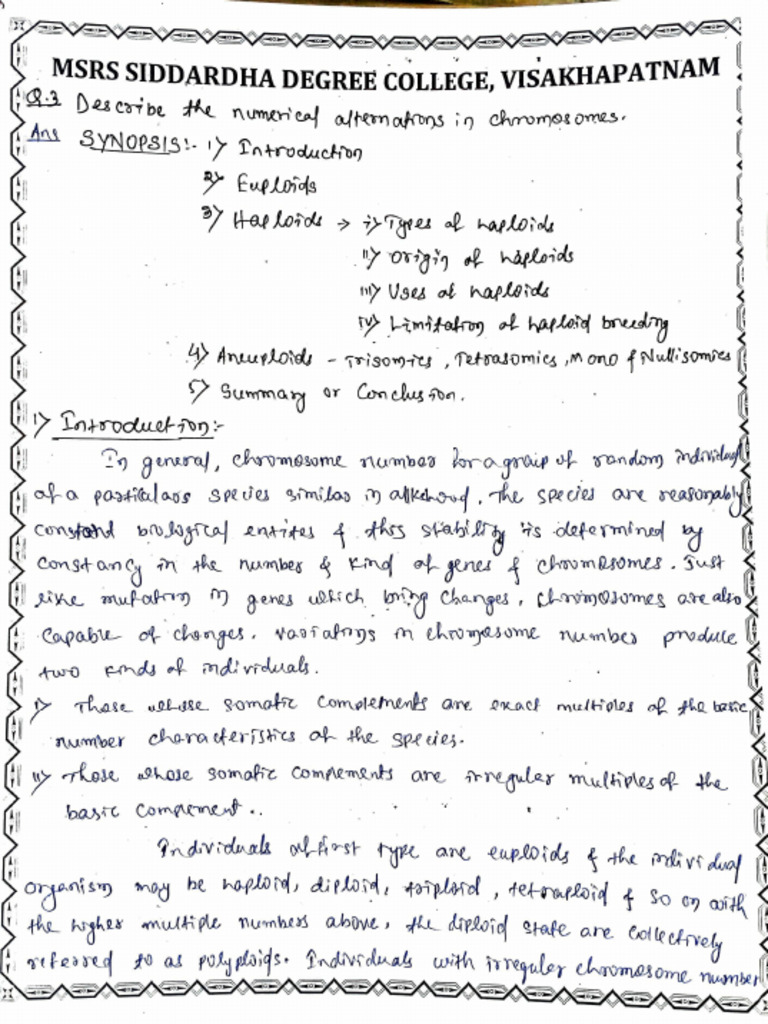 MSRS SIDDARDHA DEGREE COLLEGE, VISAKHAPATNAM
Q.3 Describe the numerical alternations in chromosomes.
Ans SYNOPSIS:- 1) Introduction
2) Euploids
3) Haploids → i) Types of haploids
ii) Origin of haploids
iii) Uses of haploids
iv) Limitation of haploid breeding
4) Aneuploids - Trisomics, Tetrasomics, Mono & Nullisomics
5) Summary or Conclusion.
1) Introduction:-
In general, chromosome number for a group of random individual
of a particulars species similar in . The species are reasonably
constand biological entites & this stability is determined by
constancy in the number & kind of genes & chromosomes. Just
like mutation in genes which bring changes, chromosomes are also
capable of changes. Variations in chromosome number produce
two kinds of individuals.
i) Those whose somatic complements are exact multiples of the basic
number characteristics of the species.
ii) Those whose somatic complements are irregular multiples of the
basic complement..
Individuals of first type are euploids & the individual
organism may be haploid, diploid, triploid, tetraploid & so on with
the higher multiple numbers above, the diploid state are collectively
referred to as polyploids. Individuals with irregular chromosome number